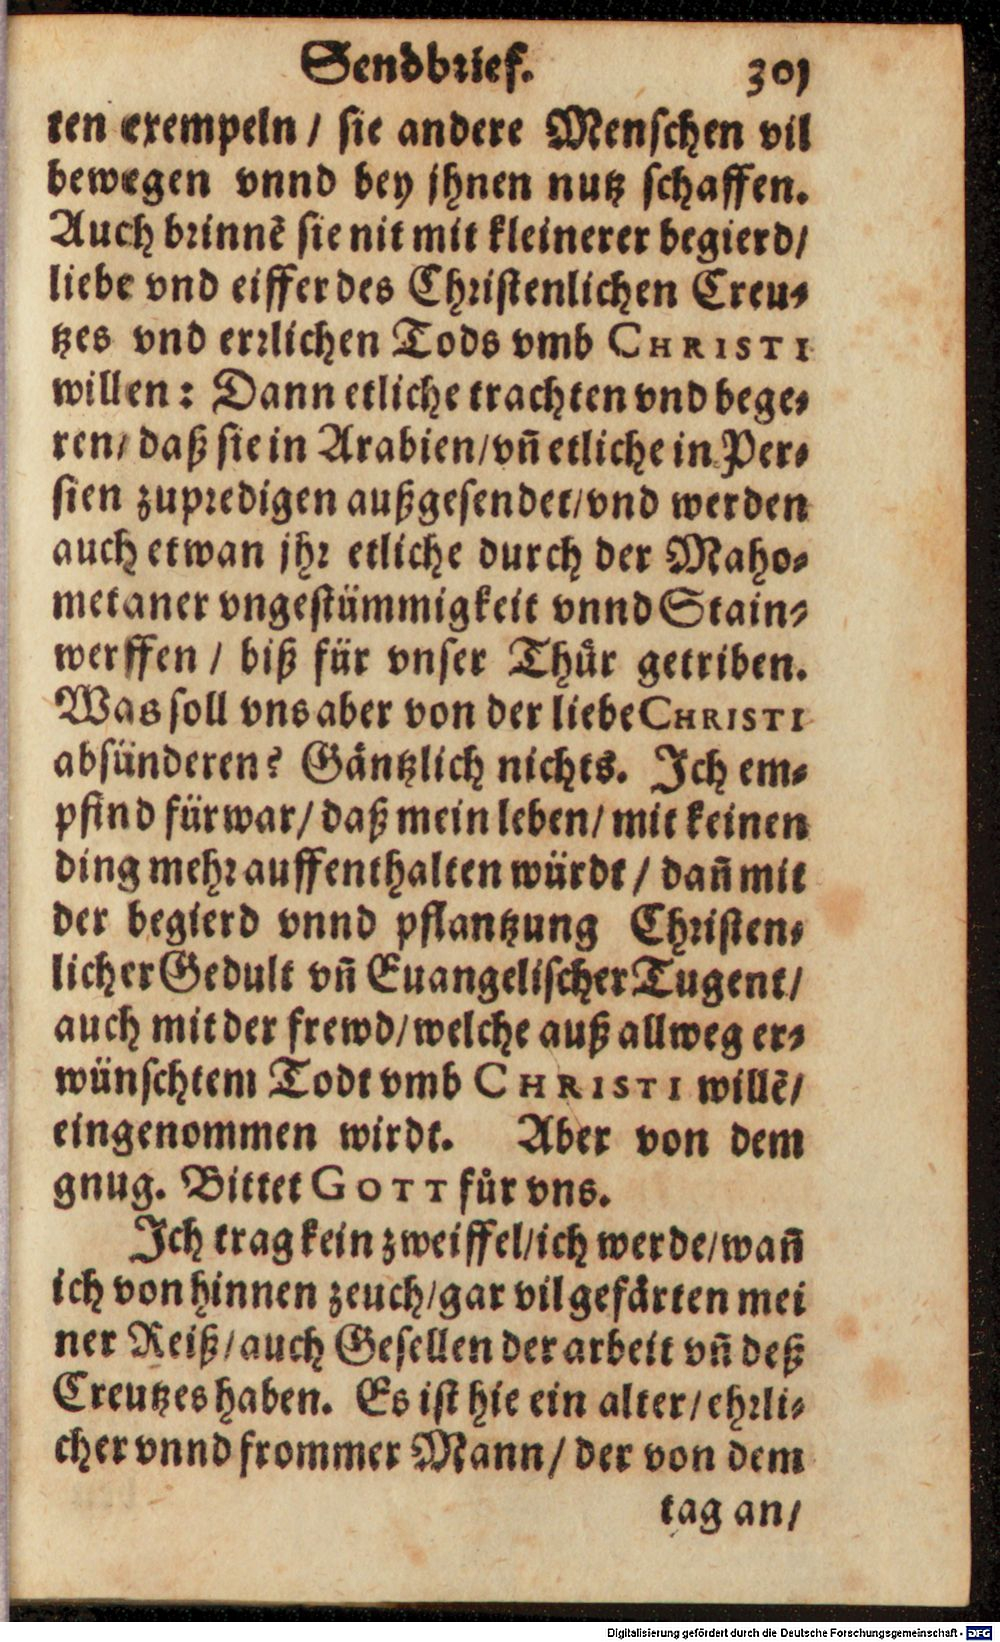 Sendbrief. 301
ten exempeln / sie andere Menschen vil
bewegen vnnd bey jhnen nutz schaffen.
Auch brinnẽ sie nit mit kleinerer begierd/
liebe vnd eiffer des Christenlichen Creu⸗
tzes vnd errlichen Tods vmb CHRISTI
willen: Dann etliche trachten vnd bege⸗
ren/ daß sie in Arabien/vñ etliche in Per⸗
sien zupredigen außgesendet/vnd werden
auch etwan jhr etliche durch der Maho⸗
metaner vngestümmigkeit vnnd Stain⸗
werffen / biß für vnser Thür getriben.
Was soll vns aber von der liebe CHRISTI
absünderen? Gäntzlich nichts. Ich em⸗
pfind fürwar/ daß mein leben/ mit keinen
ding mehr auffenthalten würdt / dañ mit
der begierd vnnd pflantzung Christen⸗
licher Gedult vñ Euangelischer Tugent/
auch mit der frewd/welche auß allweg er⸗
wünschtem Todt vmb CHRISTI willẽ/
eingenommen wirdt. Aber von dem
gnug. Bittet GOTT für vns.
Ich trag kein zweiffel/ich werde/wañ
ich von hinnen zeuch/gar vil gefärten mei
ner Reiß/auch Gesellen der arbeit vñ deß
Creutzes haben. Es ist hie ein alter/ehrli⸗
cher vnnd frommer Mann/ der von dem
tag an/
Digitalisierung gefördert durch die Deutsche Forschungsgemeinschaft - DFG